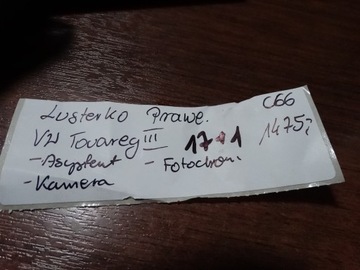 C66
Lusterko Prawe.
VW Touareg III 17•1 1475,-
- Asystent - Fotochrom.
- Kamera